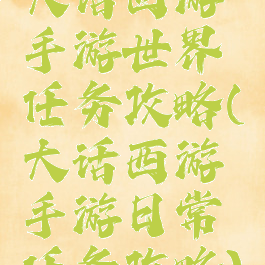 大话西游
手游世界
任务攻略(
大话西游
手游日常
任务攻略)